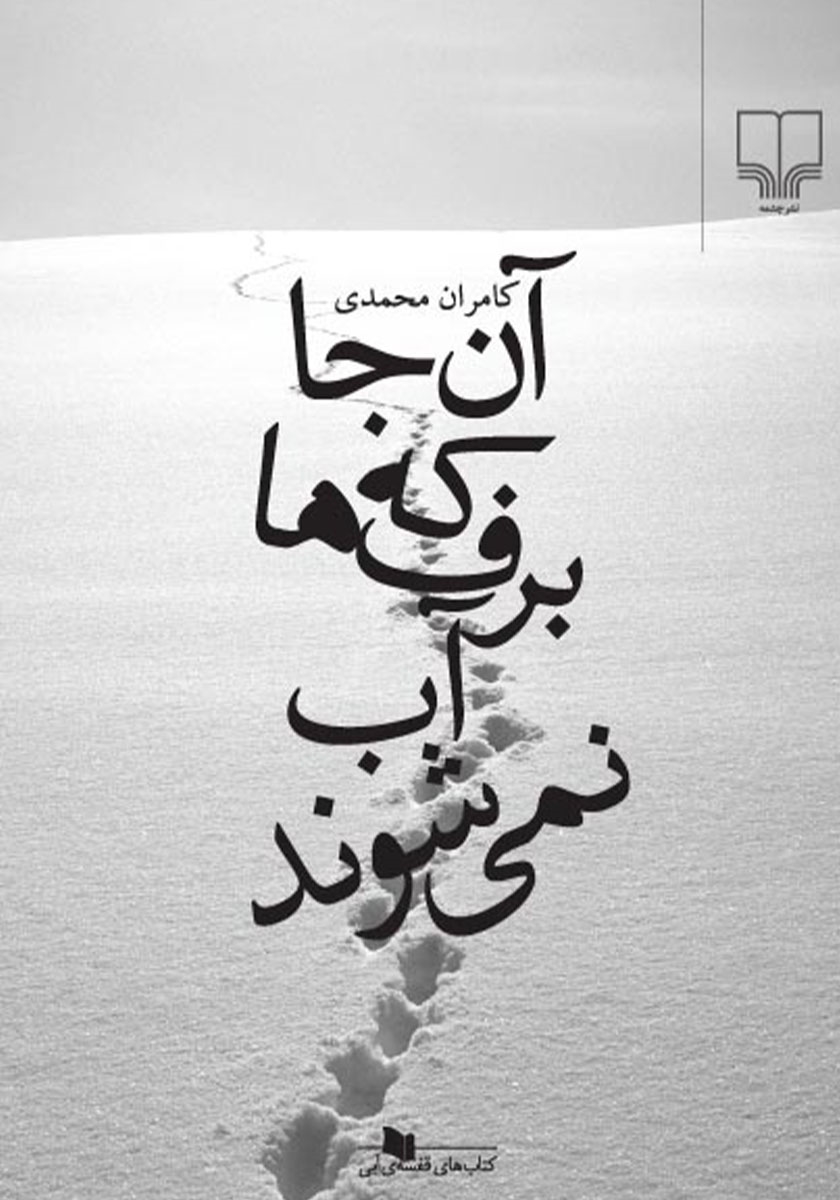 نشرچشمه
کامران محمدی
آن جا
که
برف‌ها
آب
نمی‌شوند
کتاب‌های قفسه‌ی آبی